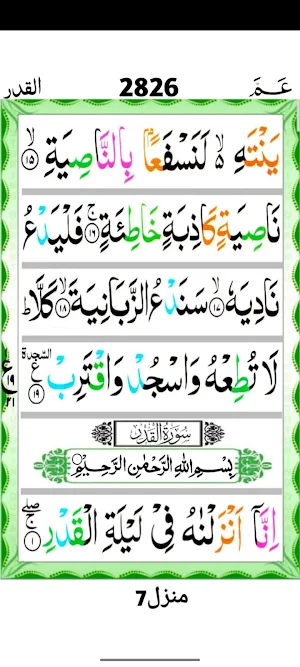 القدر 2826 عَمَّ
يَنْتَهِ ۙ لَنَسْفَعًاۢ بِالنَّاصِيَةِ ۙ﴿۱۵﴾
نَاصِيَةٍ كَاذِبَةٍ خَاطِئَةٍ ۚ﴿۱۶﴾ فَلْيَدْعُ
نَادِيَهٗ ۙ﴿۱۷﴾ سَنَدْعُ الزَّبَانِيَةَ ۙ﴿۱۸﴾ كَلَّا ؕ
لَا تُطِعْهُ وَاسْجُدْ وَاقْتَرِبْ ﴿۱۹﴾ ع السجدة
ع ۱۹ ۲۱
سُوْرَةُ الْقَدْرِ
بِسْمِ اللّٰهِ الرَّحْمٰنِ الرَّحِيْمِ
اِنَّاۤ اَنْزَلْنٰهُ فِیْ لَيْلَةِ الْقَدْرِ ۚۖ﴿۱﴾
منزل 7